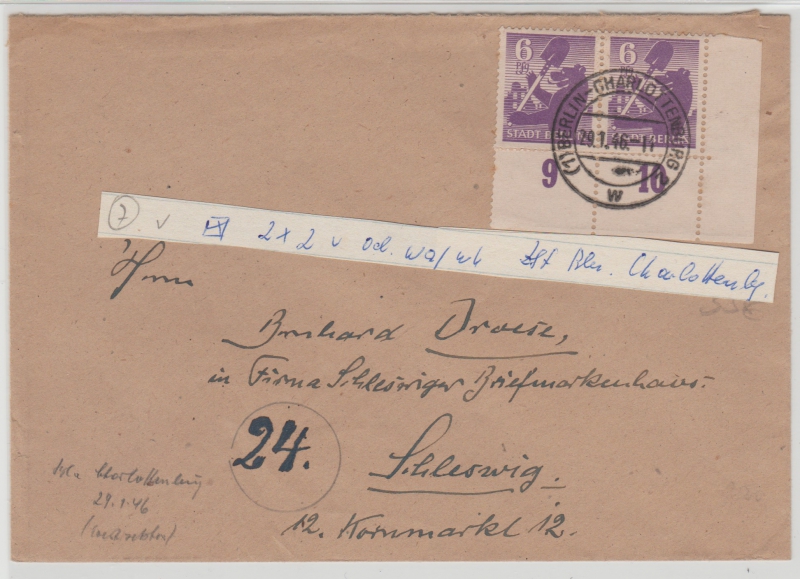 6 6
PFG PFG
STADT BERLIN STADT BERLIN
(1) BERLIN-CHARLOTTENBURG 2
29.1.46.-11
W
9 10
7 v 2x2 v od. wa/wh Bln. Charlottenbg.
Herrn
Bernhard Droese,
in Firma Schleswiger Briefmarkenhaus.
24.
Schleswig.
12. Kornmarkt 12.
Bln Charlottenburg
29.1.46